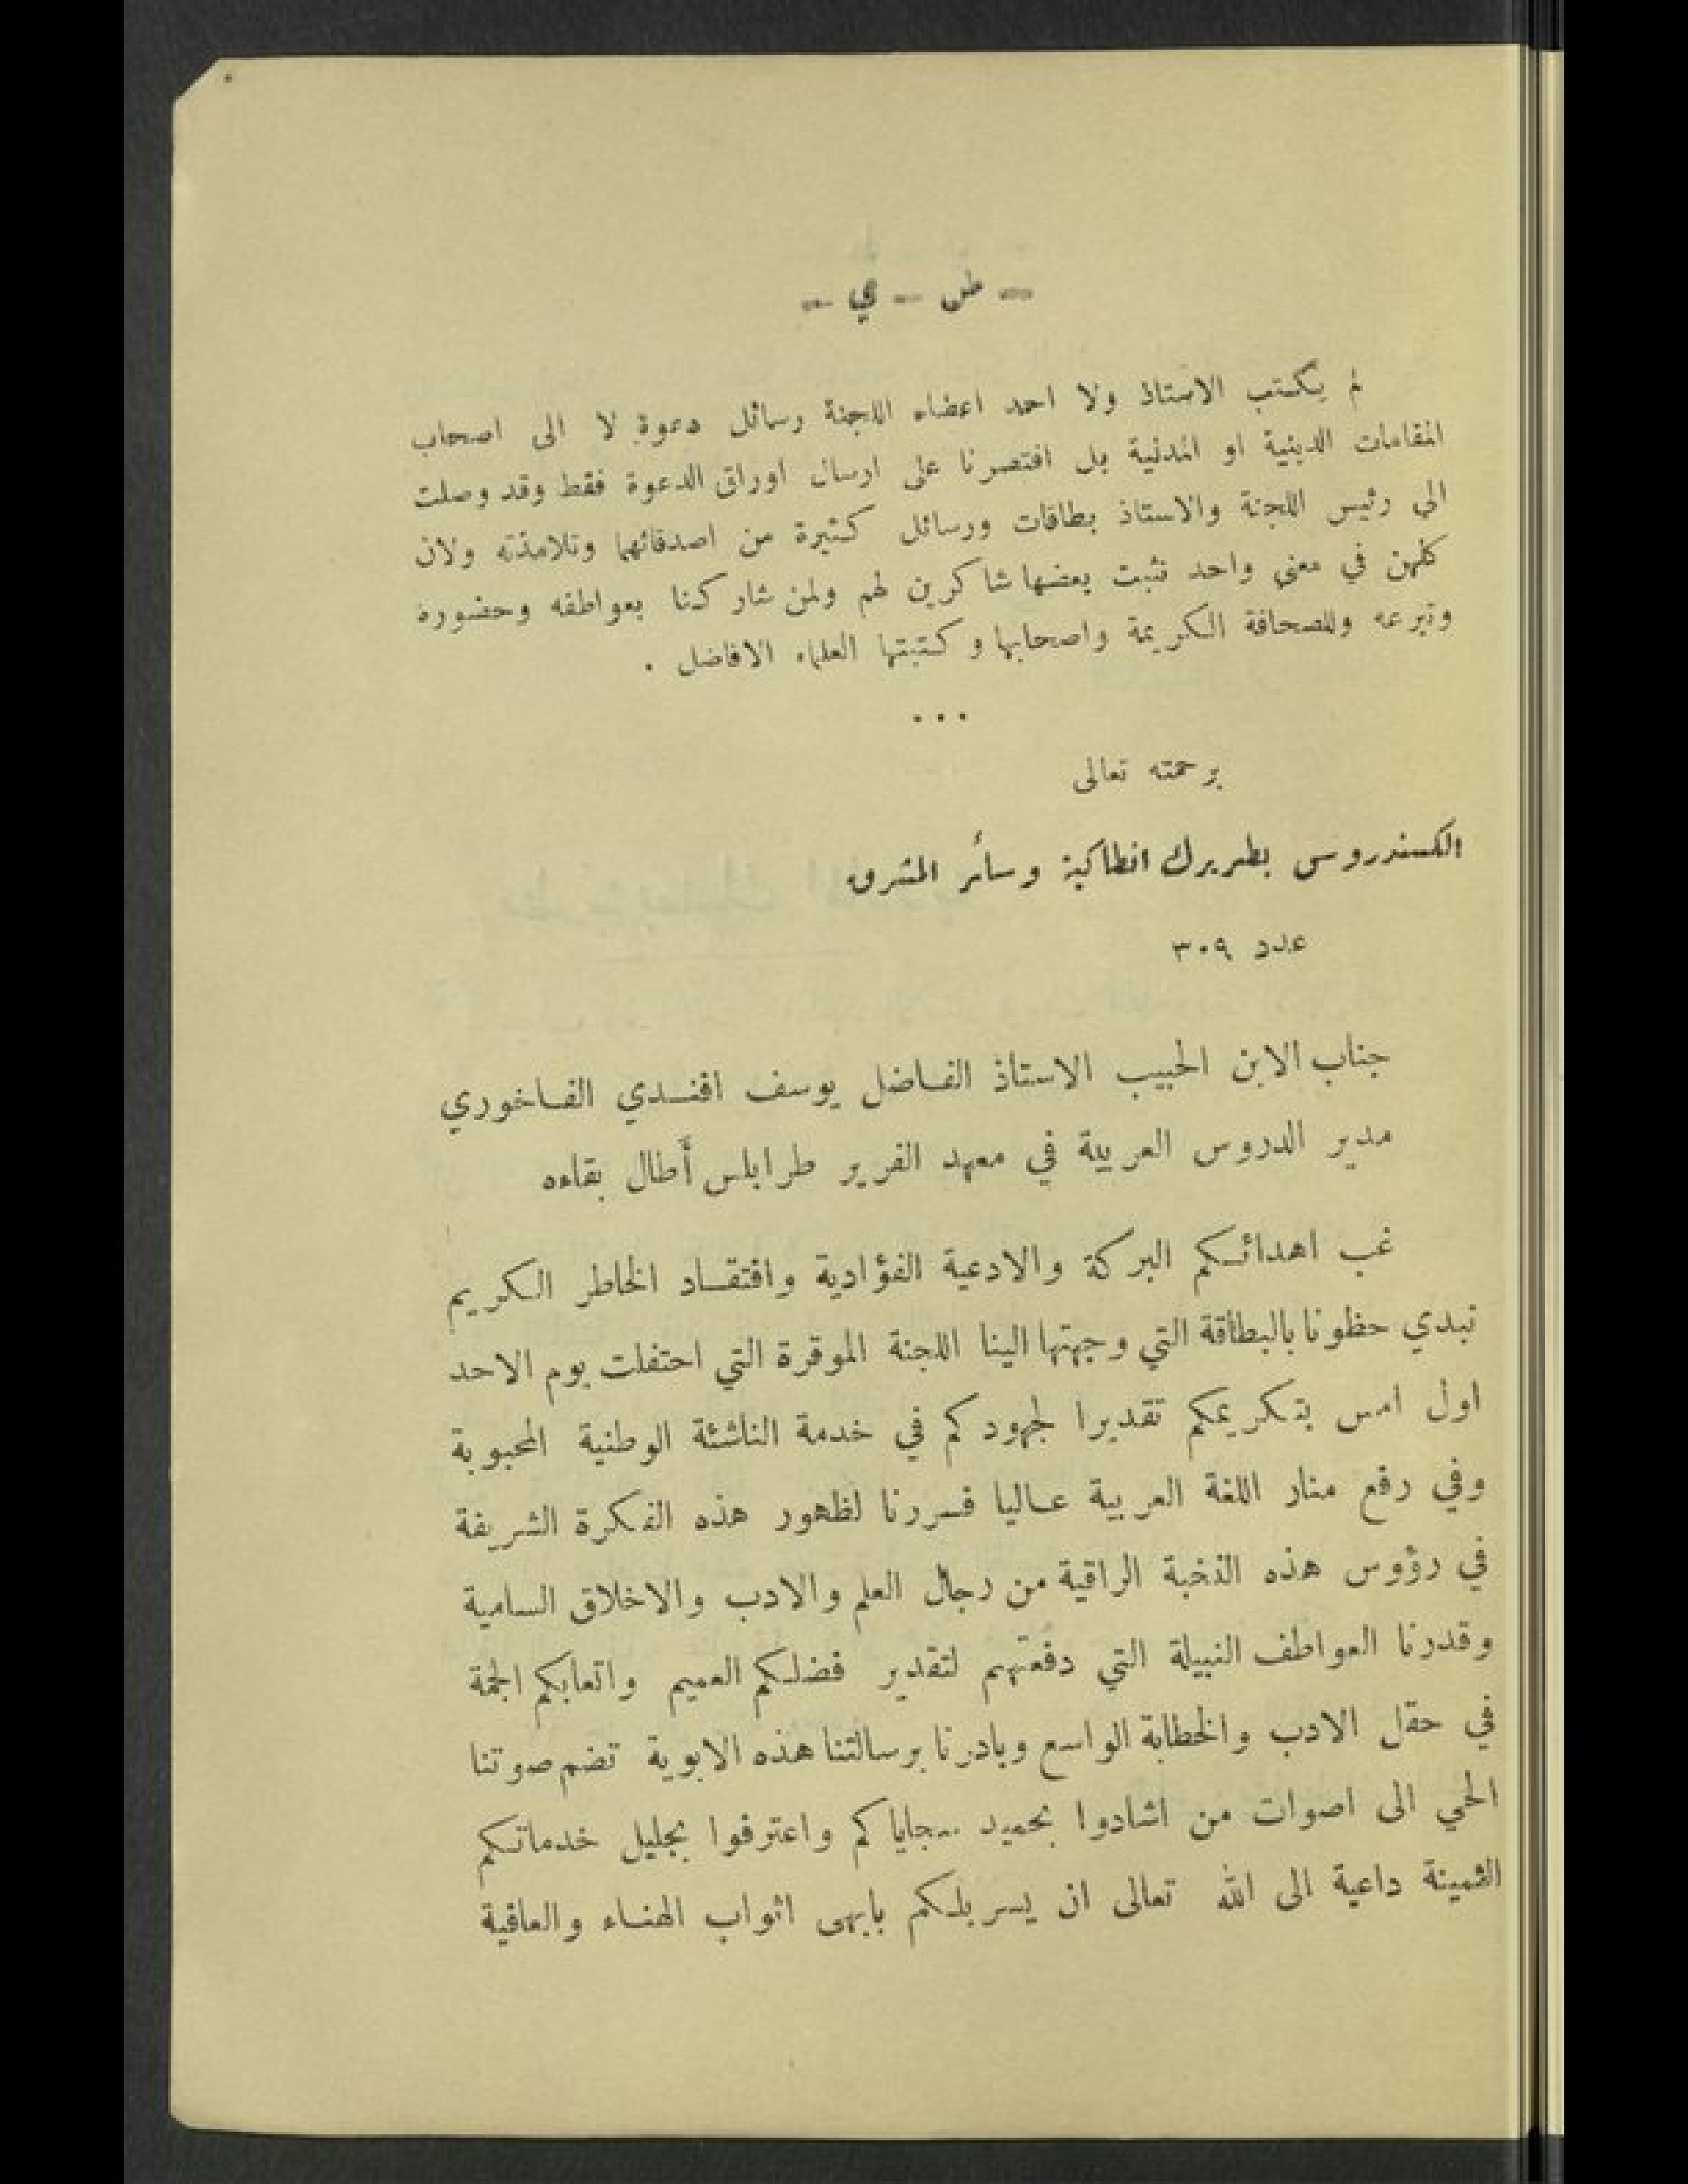 - ض - ي -
لم يكتب الاستاذ ولا احد اعضاء اللجنة رسائل دعوة لا الى اصحاب
المقامات الدينية او المدنية بل اقتصرنا على ارسال اوراق الدعوة فقط وقد وصلت
الى رئيس اللجنة والاستاذ بطاقات ورسائل كثيرة من اصدقائهما وتلامذته ولان
كلهن في معنى واحد نثبت بعضها شاكرين لهم ولمن شاركنا بعواطفه وحضوره
وتبرعه وللصحافة الكريمة واصحابها وكتبتها العلماء الافاضل .
...
برحمته تعالى
الكسندروس بطريرك انطاكية وسائر المشرق
عدد ٣٠٩
جناب الابن الحبيب الاستاذ الفاضل يوسف افندي الفاخوري
مدير الدروس العربية في معهد الفرير طرابلس أطال بقاءه
غب اهدائكم البركة والادعية الفؤادية وافتقاد الخاطر الكريم
نبدي حظونا بالبطاقة التي وجهتها الينا اللجنة الموقرة التي احتفلت يوم الاحد
اول امس بتكريمكم تقديرا لجهودكم في خدمة الناشئة الوطنية المحبوبة
وفي رفع منار اللغة العربية عاليا فسررنا لظهور هذه الفكرة الشريفة
في رؤوس هذه النخبة الراقية من رجال العلم والادب والاخلاق السامية
وقدرنا العواطف النبيلة التي دفعتهم لتقدير فضلكم العميم واتعابكم الجمة
في حقل الادب والخطابة الواسع وبادرنا برسالتنا هذه الابوية تضم صوتنا
الحي الى اصوات من اشادوا بحميد سجاياكم واعترفوا بجليل خدماتكم
الثمينة داعية الى الله تعالى ان يسربلكم بابهى اثواب الهناء والعافية